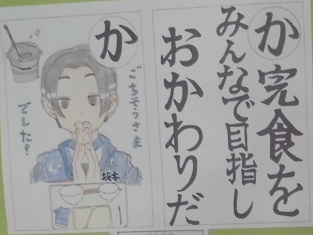 か
完食を
みんなで目指し
おかわりだ
か
ごちそうさま
でした!
坂本